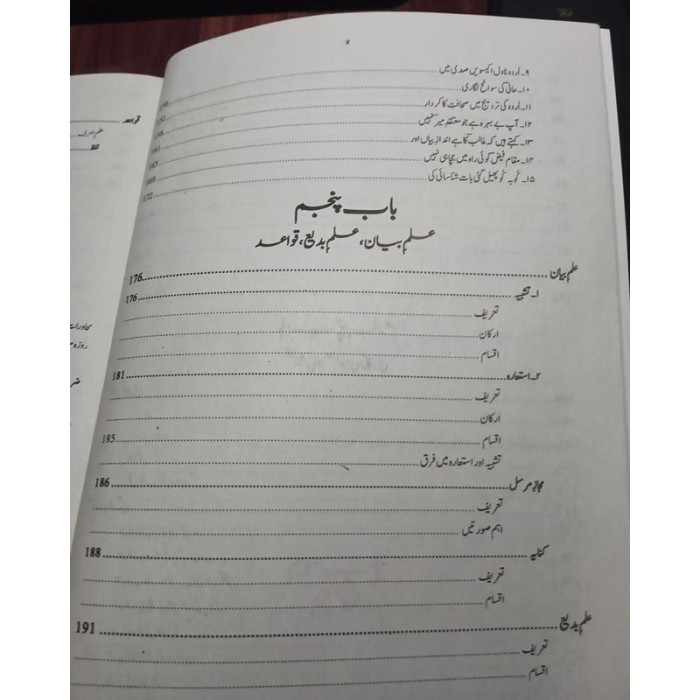 ۹۔ اردو ناول اکیسویں صدی میں
۱۰۔ حالی کی سوانح نگاری
۱۱۔ اردو کی ترویج میں صحافت کا کردار
۱۲۔ آپ بے بہرہ ہے جو معتقدِ میرؔ نہیں
۱۳۔ کہتے ہیں کہ غالب کا ہے اندازِ بیاں اور
۱۴۔ مقام فیض کوئی راہ میں جچا ہی نہیں
۱۵۔ کُو بہ کُو پھیل گئی بات شناسائی کی
172
باب پنجم
علم بیان، علم بدیع، قواعد
علم بیان 176
۱۔ تشبیہ 176
تعریف
ارکان
اقسام
۲۔ استعارہ 181
تعریف
ارکان
اقسام 185
تشبیہ اور استعارہ میں فرق
مجاز مرسل 186
تعریف
اہم صورتیں
کنایہ 188
تعریف
اقسام
علم بدیع 191
تعریف
اقسام
قواعد
علم صرف
محاورات
روزہ مر